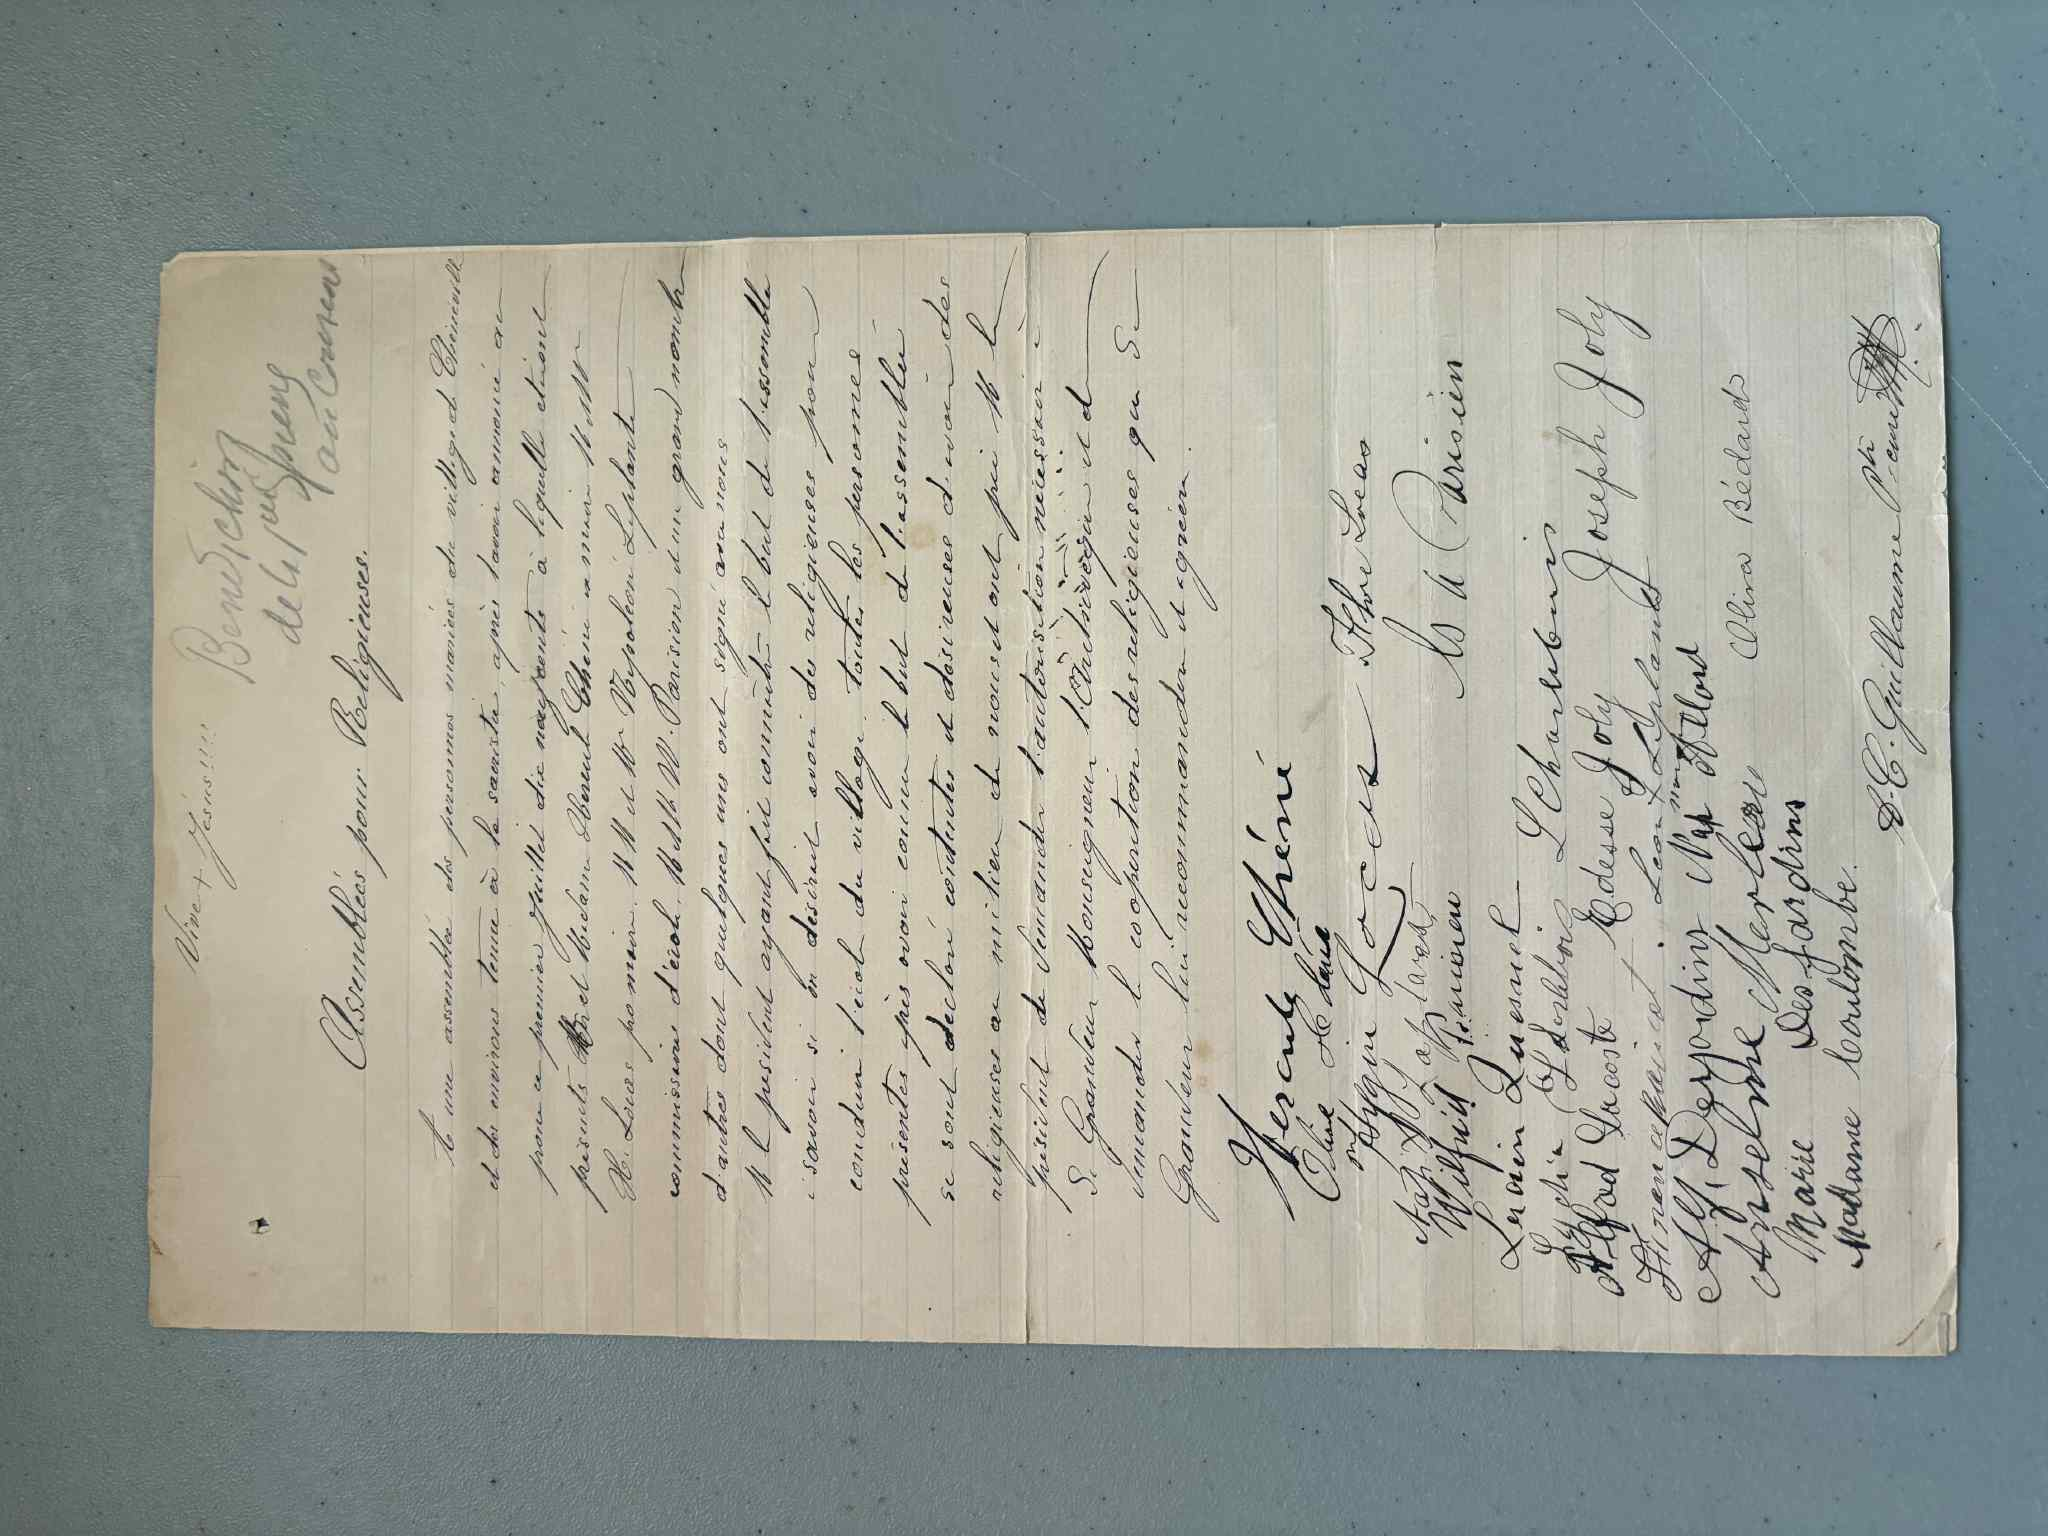 Vive + Jésus!!!!
Benediction
de la
au Couvent
Assemblées pour Religieuses.
A une assemblée des personnes mariées du village de Chénéville
et des environs tenue à la sacristie, après l'avoir annoncé au
prône ce premier juillet dix neuf cents à laquelle étaient
présents Mr et Madame Hercule Chéné ancien M.
H. Lucas Mr Napoléon Leplante
commissaires d'école, W. Parisien et un grand nombre
d'autres dont quelques uns ont signé avec nous
M le président ayant fait connaître le but de l'assemblée
à savoir si on désirait avoir des religieuses pour
conduire l'école du village. toutes les personnes
présentes après avoir connu le but de l'assemblée
se sont déclaré contentes et désireuses d'avoir des
religieuses au milieu de nous et ont prié M le
président de demander l'autorisation nécessaire à
Sa Grandeur Monseigneur l'Archevêque et de
demander la coopération des religieuses que Sa
Grandeur lui recommandera et agréera.
Hercule Chéné
H Chéné
Hygin Lucas Flore Lucas
Nap Laplante W Parisien
Wilfrid
Quesnel
L Charlebois
Lydia Charlebois
Alfred Lacoste Edesse Joly Joseph Joly
Leon Leplante
Alf. Desjardins Nap Allard
Anselme Marleau Olivia Bédard
Marie Desjardins
Madame Coulombe.
D. C. Guillaume Ptre curé